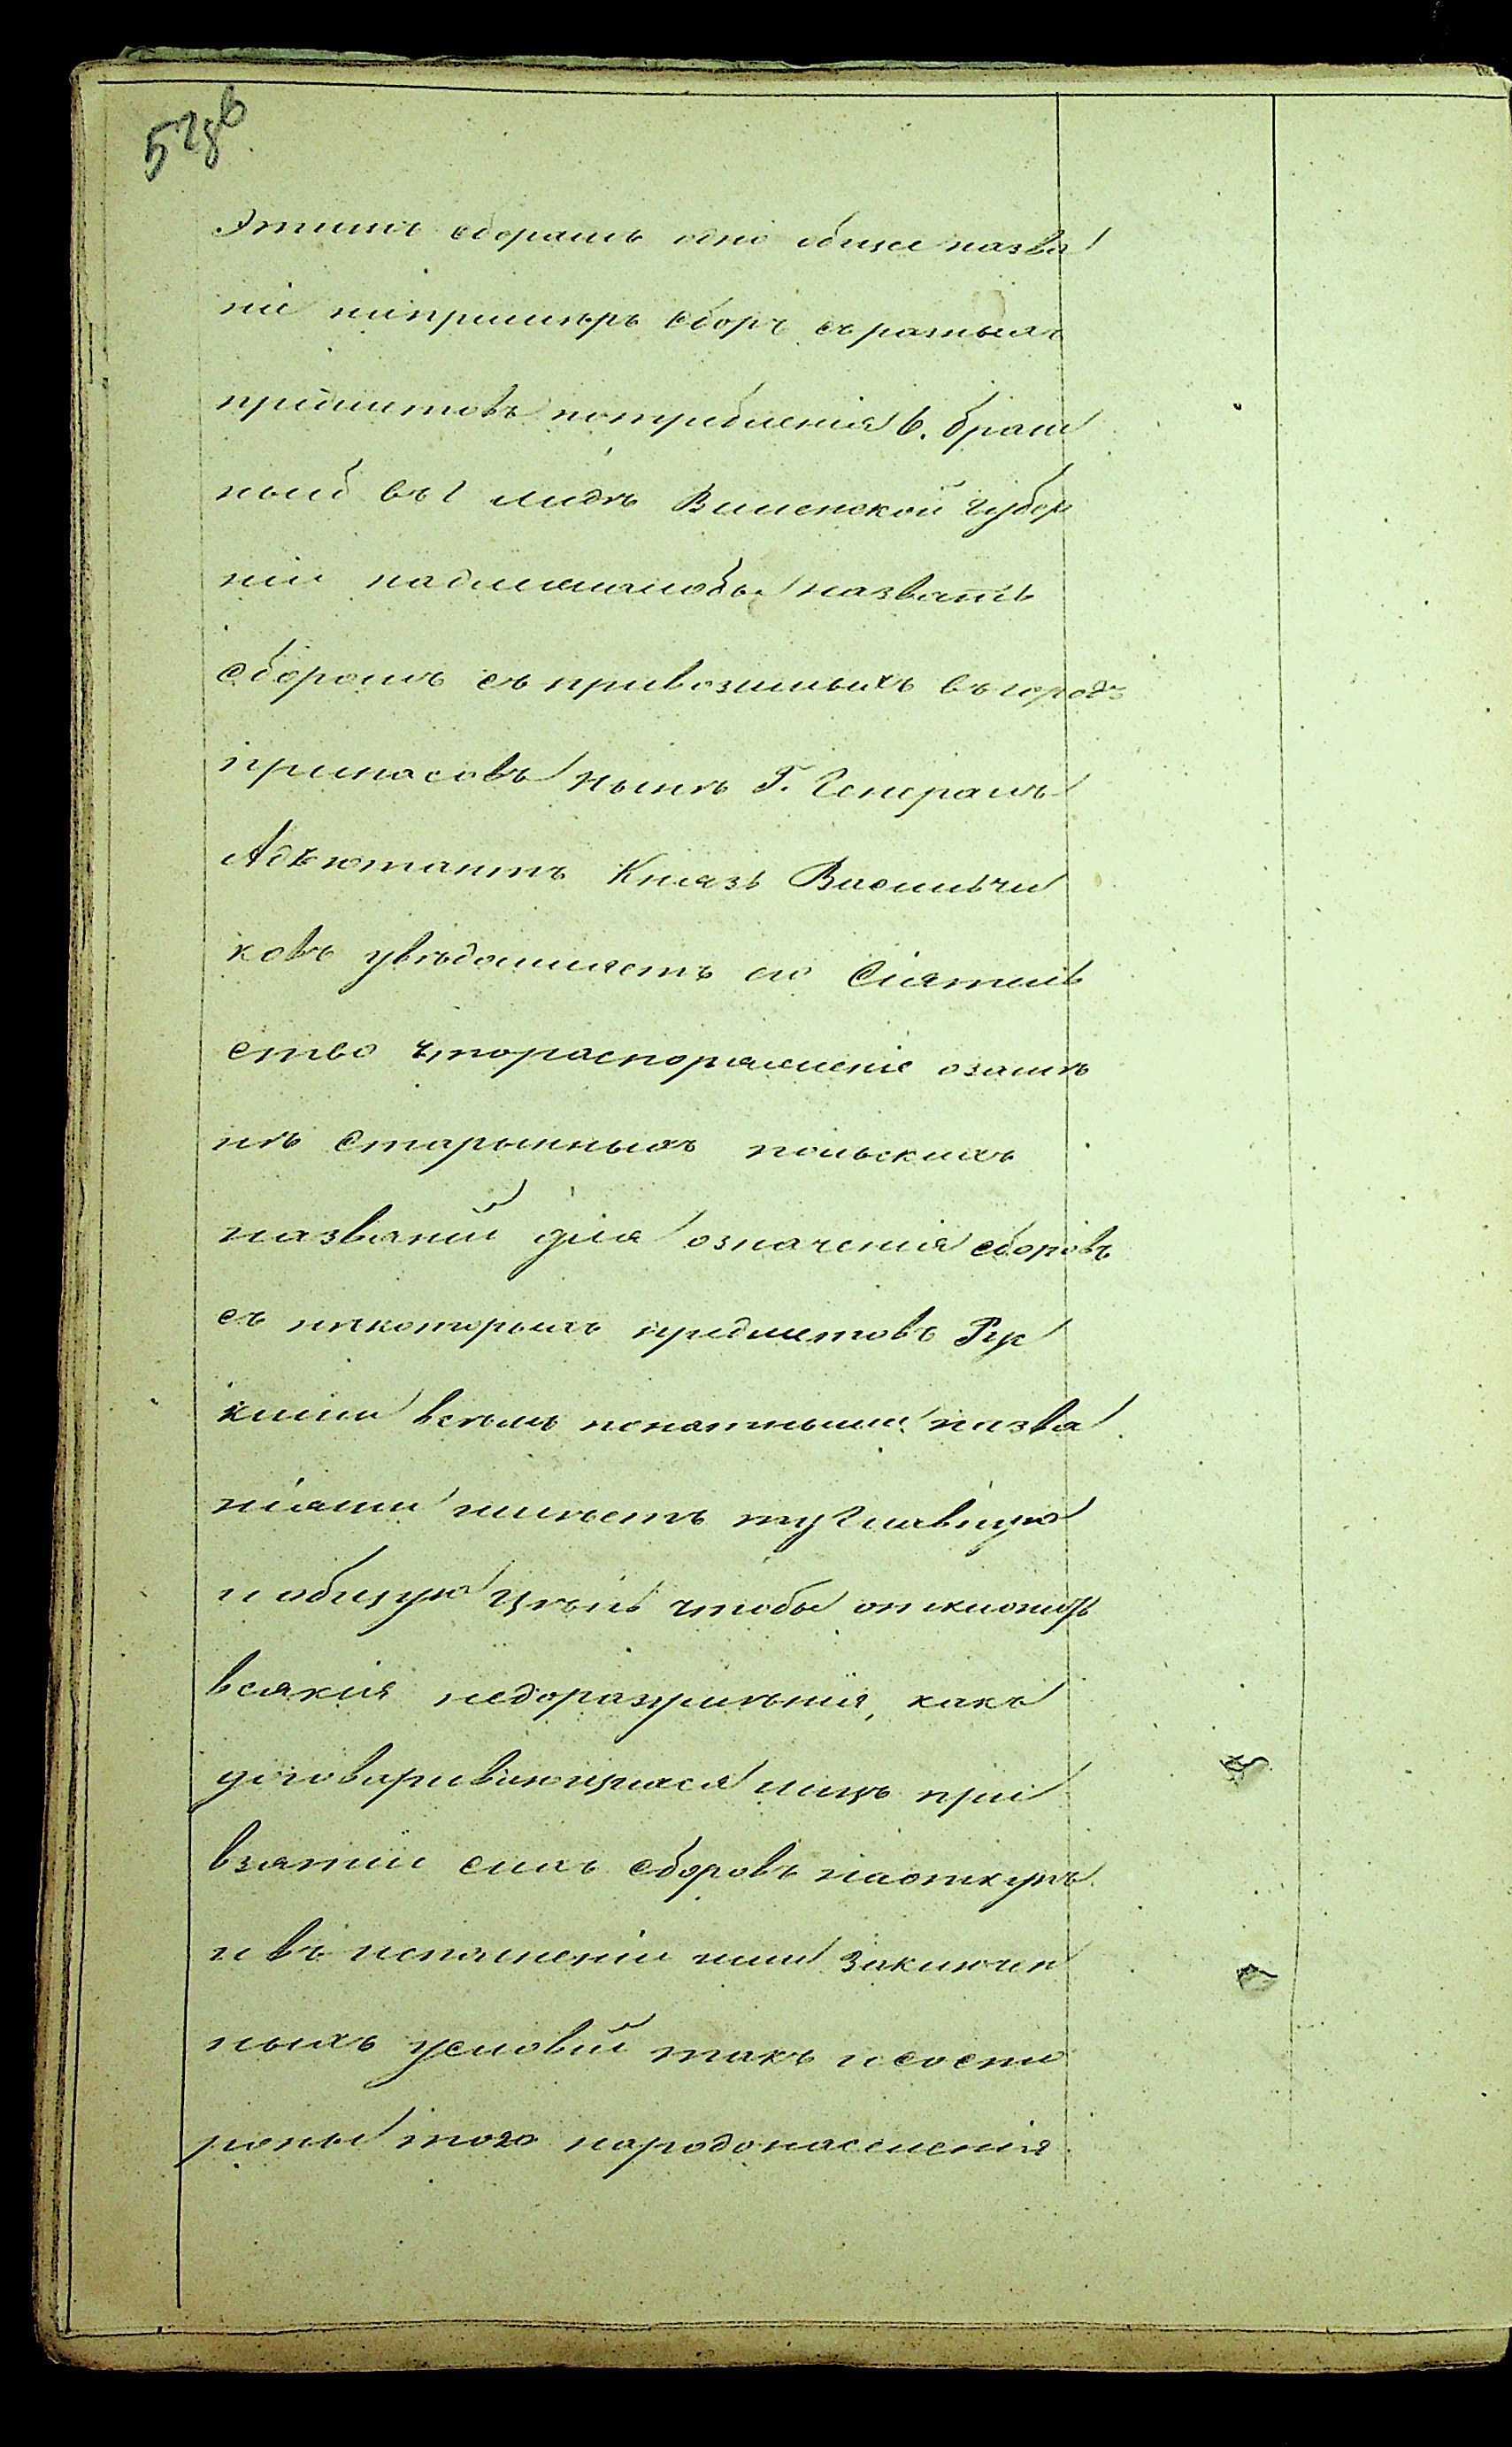 528б
Этимъ сборамъ одно общее назва
ніе напримѣръ сборъ съ разныхъ
предметовъ потребленія б. брам
ный въ г Лидѣ Виленской Губер
ніи надлежалобы назвать
сборомъ съ привозимыхъ въ городъ
припасовъ Нынѣ Г. Генералъ
Адъютантъ Князь Васильчи
ковъ увѣдомляетъ его Сіятель
ство что распоряженіе о замѣ
нѣ Старынныхъ польскихъ
названій для означенія сборовъ
съ нѣкоторыхъ предметовъ Рус
кими всѣмъ понятными назва
ніями имѣетъ ту Главную
и общую Цѣль чтобы отклонить
всякія недоразумѣнія, какъ
договаривающихся лицъ при
взятіи сихъ сборовъ на откупъ
и въ исполненіи ими заключен
ныхъ условій такъ и со сто
роны того народонаселенія